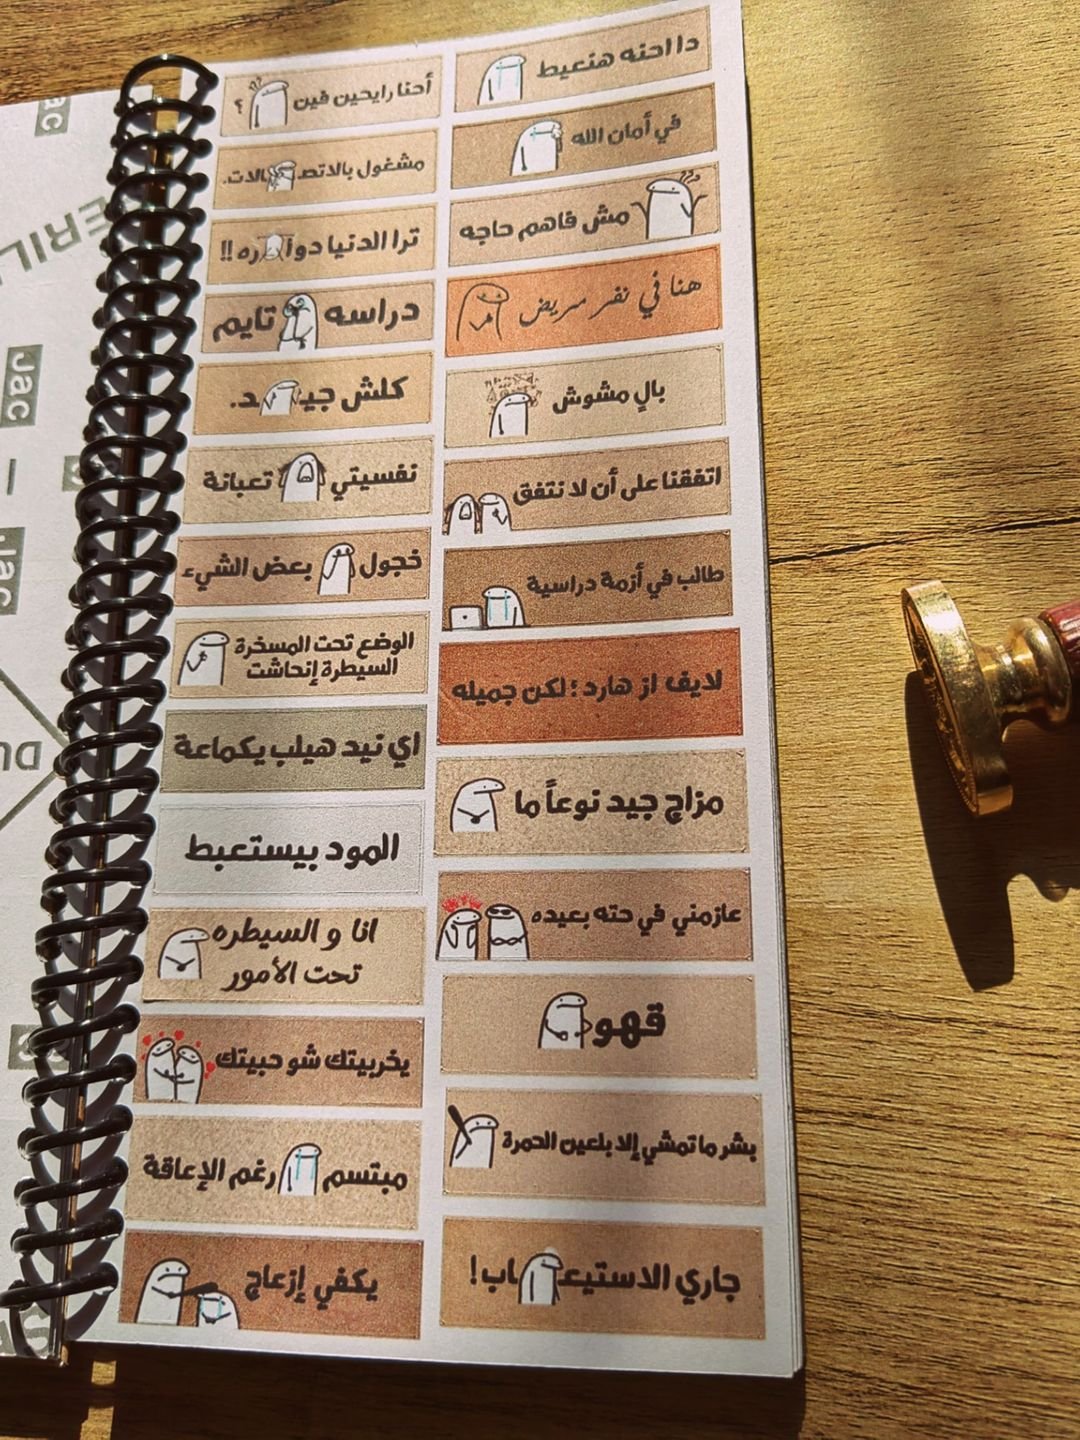 دا احنه هنعيط
في أمان الله
مش فاهم حاجه
هنا في نفر مريض
بالٍ مشوش
اتفقنا على أن لا نتفق
طالب في أزمة دراسية
لايف از هارد ؛ لكن جميله
مزاج جيد نوعاً ما
عازمني في حته بعيده
قهوه
بشر ما تمشي إلا بلعين الحمرة
جاري الاستيعاب!
أحنا رايحين فين ؟
مشغول بالاتصالات.
ترا الدنيا دواره !!
دراسه تايم
كلش جيد.
نفسيتي تعبانة
خجول بعض الشيء
الوضع تحت المسخرة
السيطرة إنحاشت
اي نيد هيلب يكماعة
المود بيستعبط
انا و السيطره
تحت الأمور
يخربيتك شو حبيتك
مبتسم رغم الإعاقة
يكفي إزعاج
Jac
Jac